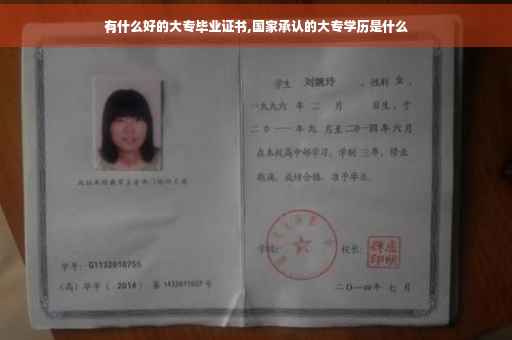 有什么好的大专毕业证书,国家承认的大专学历是什么
学生 刘婉玲 ，性别 女 ，
一九九六 年 二 月 日生，于
二〇一一年九 月至二〇一四年六月
在本校高中部学习，学制 三年，修业
期满，成绩合格，准予毕业。
学号： G1132010755
(高) 毕字 ( 2014 ) 第 1432011027 号
学校：
校长：
二〇一四年 七 月